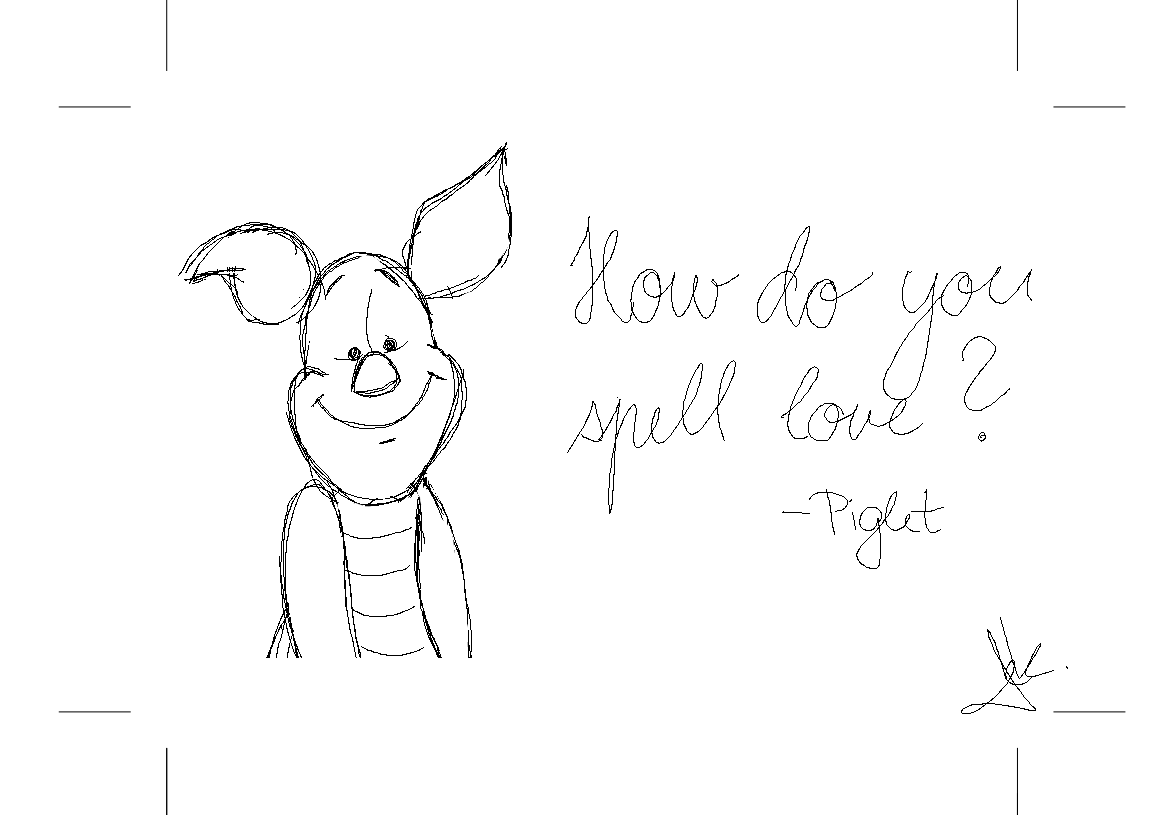 How do you
spell love?
-Piglet